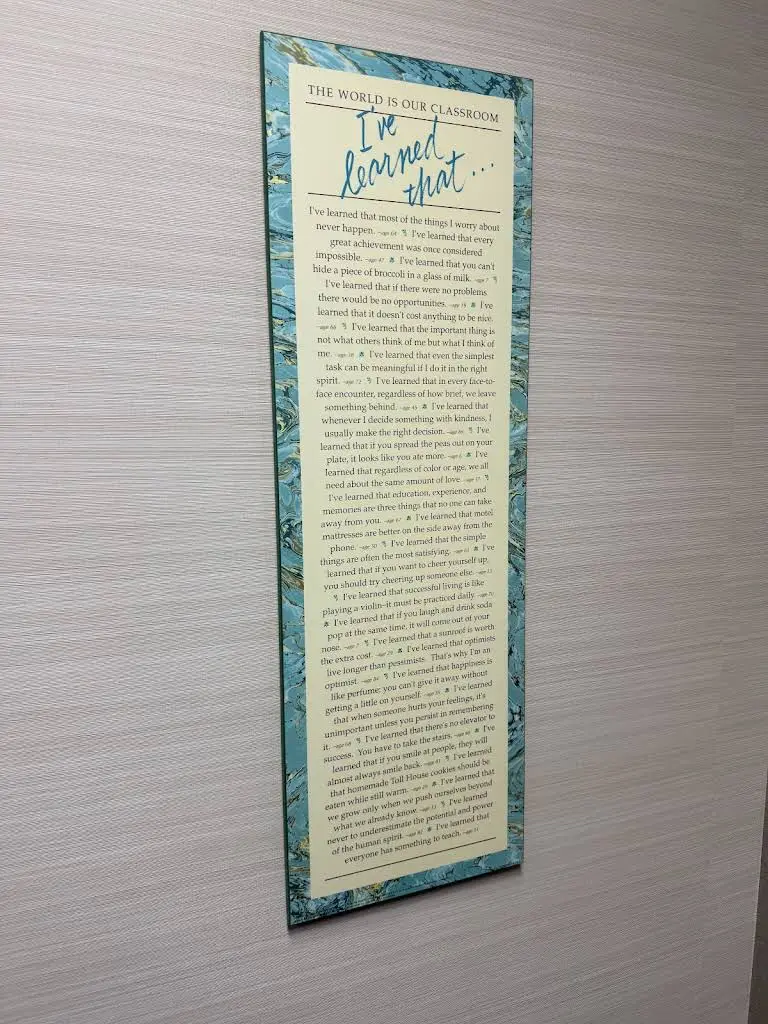 THE WORLD IS OUR CLASSROOM
I've
learned
that...
I've learned that most of the things I worry about
never happen. –age 64 I've learned that every
great achievement was once considered
impossible. –age 47 I've learned that you can't
hide a piece of broccoli in a glass of milk. –age 7
I've learned that if there were no problems
there would be no opportunities. –age 19 I've
learned that it doesn't cost anything to be nice.
–age 66 I've learned that the important thing is
not what others think of me but what I think of
me. –age 38 I've learned that even the simplest
task can be meaningful if I do it in the right
spirit. –age 72 I've learned that in every face-to-
face encounter, regardless of how brief, we leave
something behind. –age 45 I've learned that
whenever I decide something with kindness, I
usually make the right decision. –age 66 I've
learned that if you spread the peas out on your
plate, it looks like you ate more. –age 6 I've
learned that regardless of color or age, we all
need about the same amount of love. –age 37
I've learned that education, experience, and
memories are three things that no one can take
away from you. –age 67 I've learned that motel
mattresses are better on the side away from the
phone. –age 50 I've learned that the simple
things are often the most satisfying. –age I've
learned that if you want to cheer yourself up,
you should try cheering up someone else. –age 13
I've learned that successful living is like
playing a violin–it must be practiced daily. –age 70
I've learned that if you laugh and drink soda
pop at the same time, it will come out of your
nose. –age 7 I've learned that a sunroof is worth
the extra cost. –age 29 I've learned that optimists
live longer than pessimists. That's why I'm an
optimist. –age 84 I've learned that happiness is
like perfume: you can't give it away without
getting a little on yourself. –age I've learned
that when someone hurts your feelings, it's
unimportant unless you persist in remembering
it. –age 68 I've learned that there's no elevator to
success. You have to take the stairs. –age 48 I've
learned that if you smile at people, they will
almost always smile back. –age 81 I've learned
that homemade Toll House cookies should be
eaten while still warm. –age 29 I've learned that
we grow only when we push ourselves beyond
what we already know. –age 53 I've learned
never to underestimate the potential and power
of the human spirit. –age 82 I've learned that
everyone has something to teach. –age 51